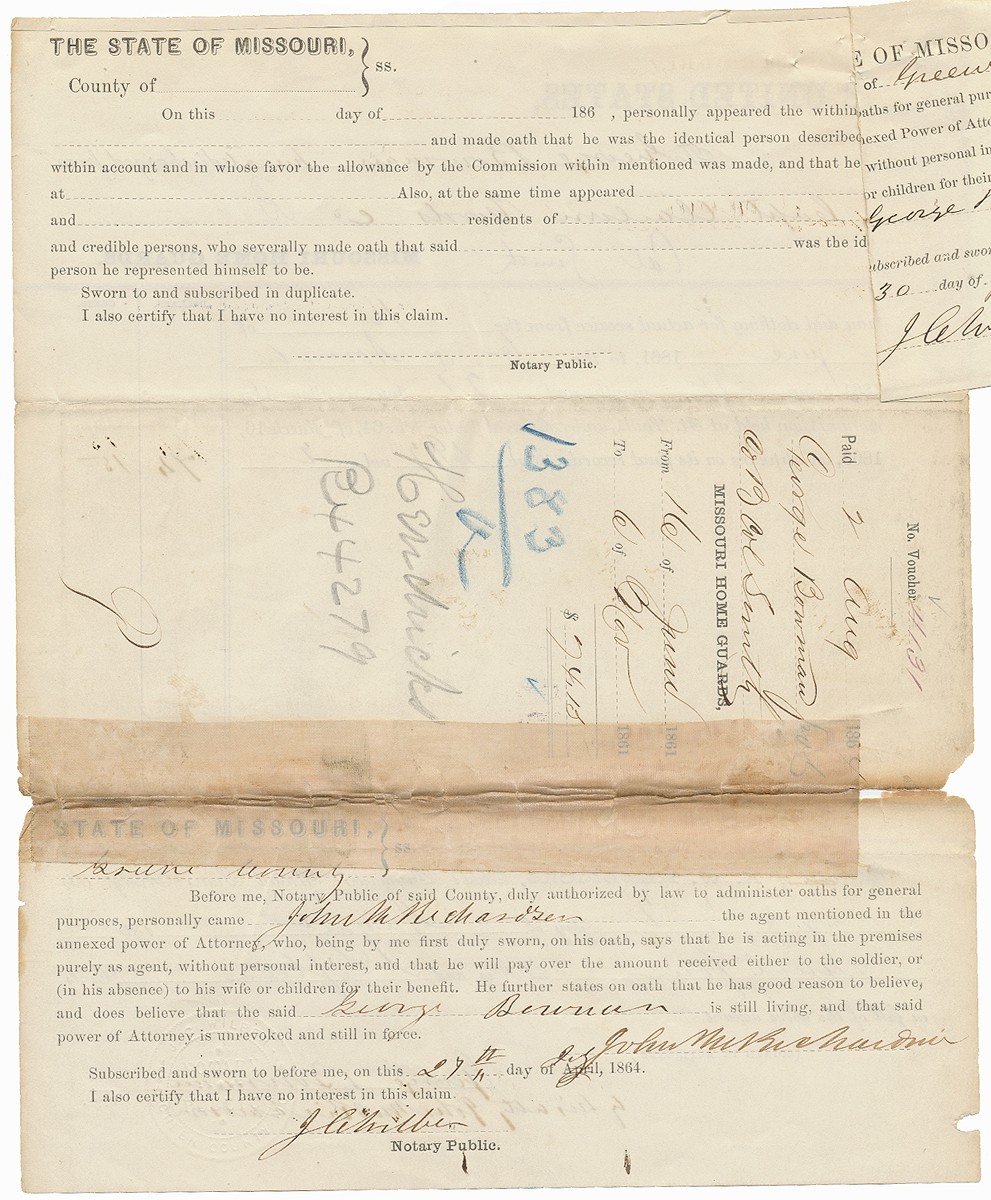 THE STATE OF MISSOURI, } ss.
County of
On this day of 186 , personally appeared the within
and made oath that he was the identical person described
within account and in whose favor the allowance by the Commission within mentioned was made, and that he
at Also, at the same time appeared
and residents of
and credible persons, who severally made oath that said was the id
person he represented himself to be.
Sworn to and subscribed in duplicate.
I also certify that I have no interest in this claim.
Notary Public.
E OF MISSO
of Green
oaths for general pur
nexed Power of Atto
without personal in
or children for their
George
ubscribed and swor
30 day of
No. Voucher 4131
Paid 2 Aug 186
George Bowman
Co B Col Smith
MISSOURI HOME GUARDS,
From 16 of June 1861
To 6 of Nov 1861
$ 74.15
1383
Hendricks
B44279
STATE OF MISSOURI, } ss.
Greene County
Before me, Notary Public of said County, duly authorized by law to administer oaths for general
purposes, personally came John M Richardson the agent mentioned in the
annexed power of Attorney, who, being by me first duly sworn, on his oath, says that he is acting in the premises
purely as agent, without personal interest, and that he will pay over the amount received either to the soldier, or
(in his absence) to his wife or children for their benefit. He further states on oath that he has good reason to believe,
and does believe that the said George Bowman is still living, and that said
power of Attorney is unrevoked and still in force.
John M Richardson
Subscribed and sworn to before me, on this 27th day of April, 1864.
I also certify that I have no interest in this claim.
J C Wilber
Notary Public.